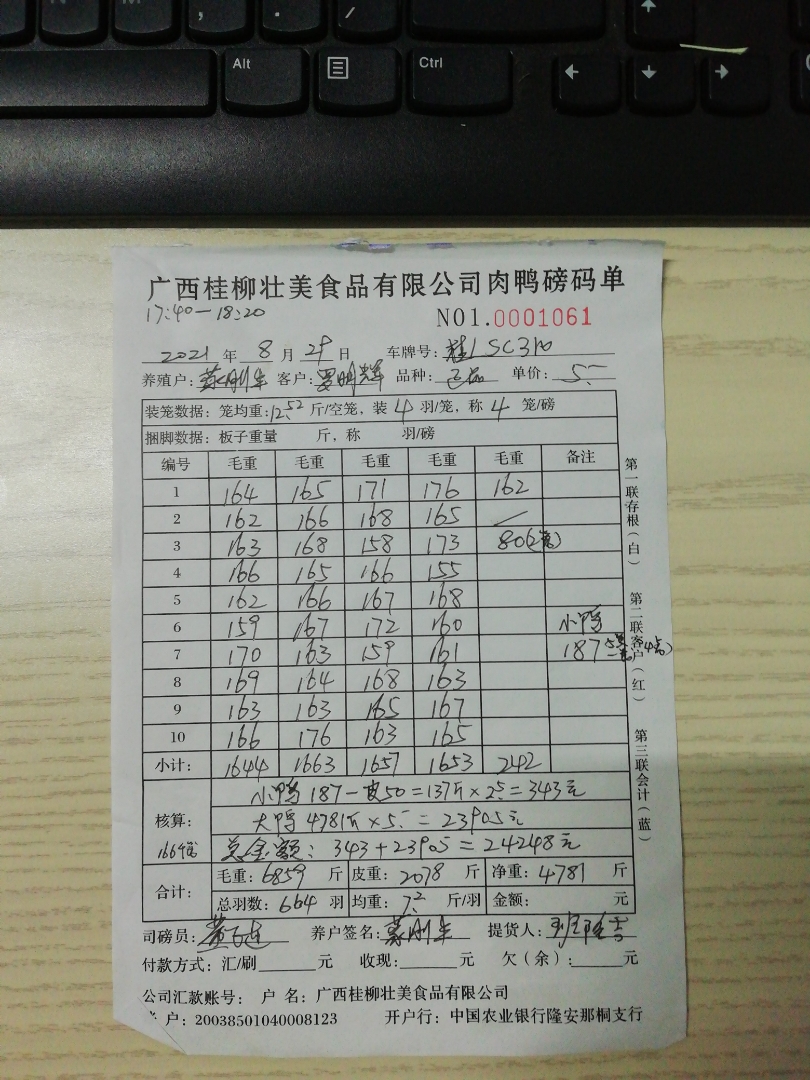 Alt
Ctrl
广西桂柳壮美食品有限公司肉鸭磅码单
17:40—18:20
NO1.0001061
2021年8月29日 车牌号:桂LSC310
养殖户: 客户: 品种:正品 单价:5.-
装笼数据:笼均重:12.52斤/空笼,装4羽/笼,称4笼/磅
捆脚数据:板子重量 斤,称 羽/磅
编号 毛重 毛重 毛重 毛重 毛重 备注
1 164 165 171 176 162
2 162 166 168 165 /
3 163 168 158 173 80(2笼)
4 166 165 166 155
5 162 166 167 168
6 159 167 172 160 小鸭
7 170 163 159 161 187
8 169 164 168 163
9 163 163 165 167
10 166 176 163 165
小计: 1644 1663 1657 1653 242
核算: 小鸭187-皮50=137斤×2.5=343元
大鸭4781斤×5.-=23905元
166笼 总金额:343+23905=24248元
合计: 毛重:6859斤 皮重:2078斤 净重:4781斤
总羽数:664羽 均重:7.2斤/羽 金额: 元
司磅员: 养户签名: 提货人:
付款方式:汇/刷 元 收现: 元 欠(余): 元
公司汇款账号: 户 名:广西桂柳壮美食品有限公司
户:20038501040008123 开户行:中国农业银行隆安那桐支行
第一联存根(白)
第二联客户(红)
第三联会计(蓝)